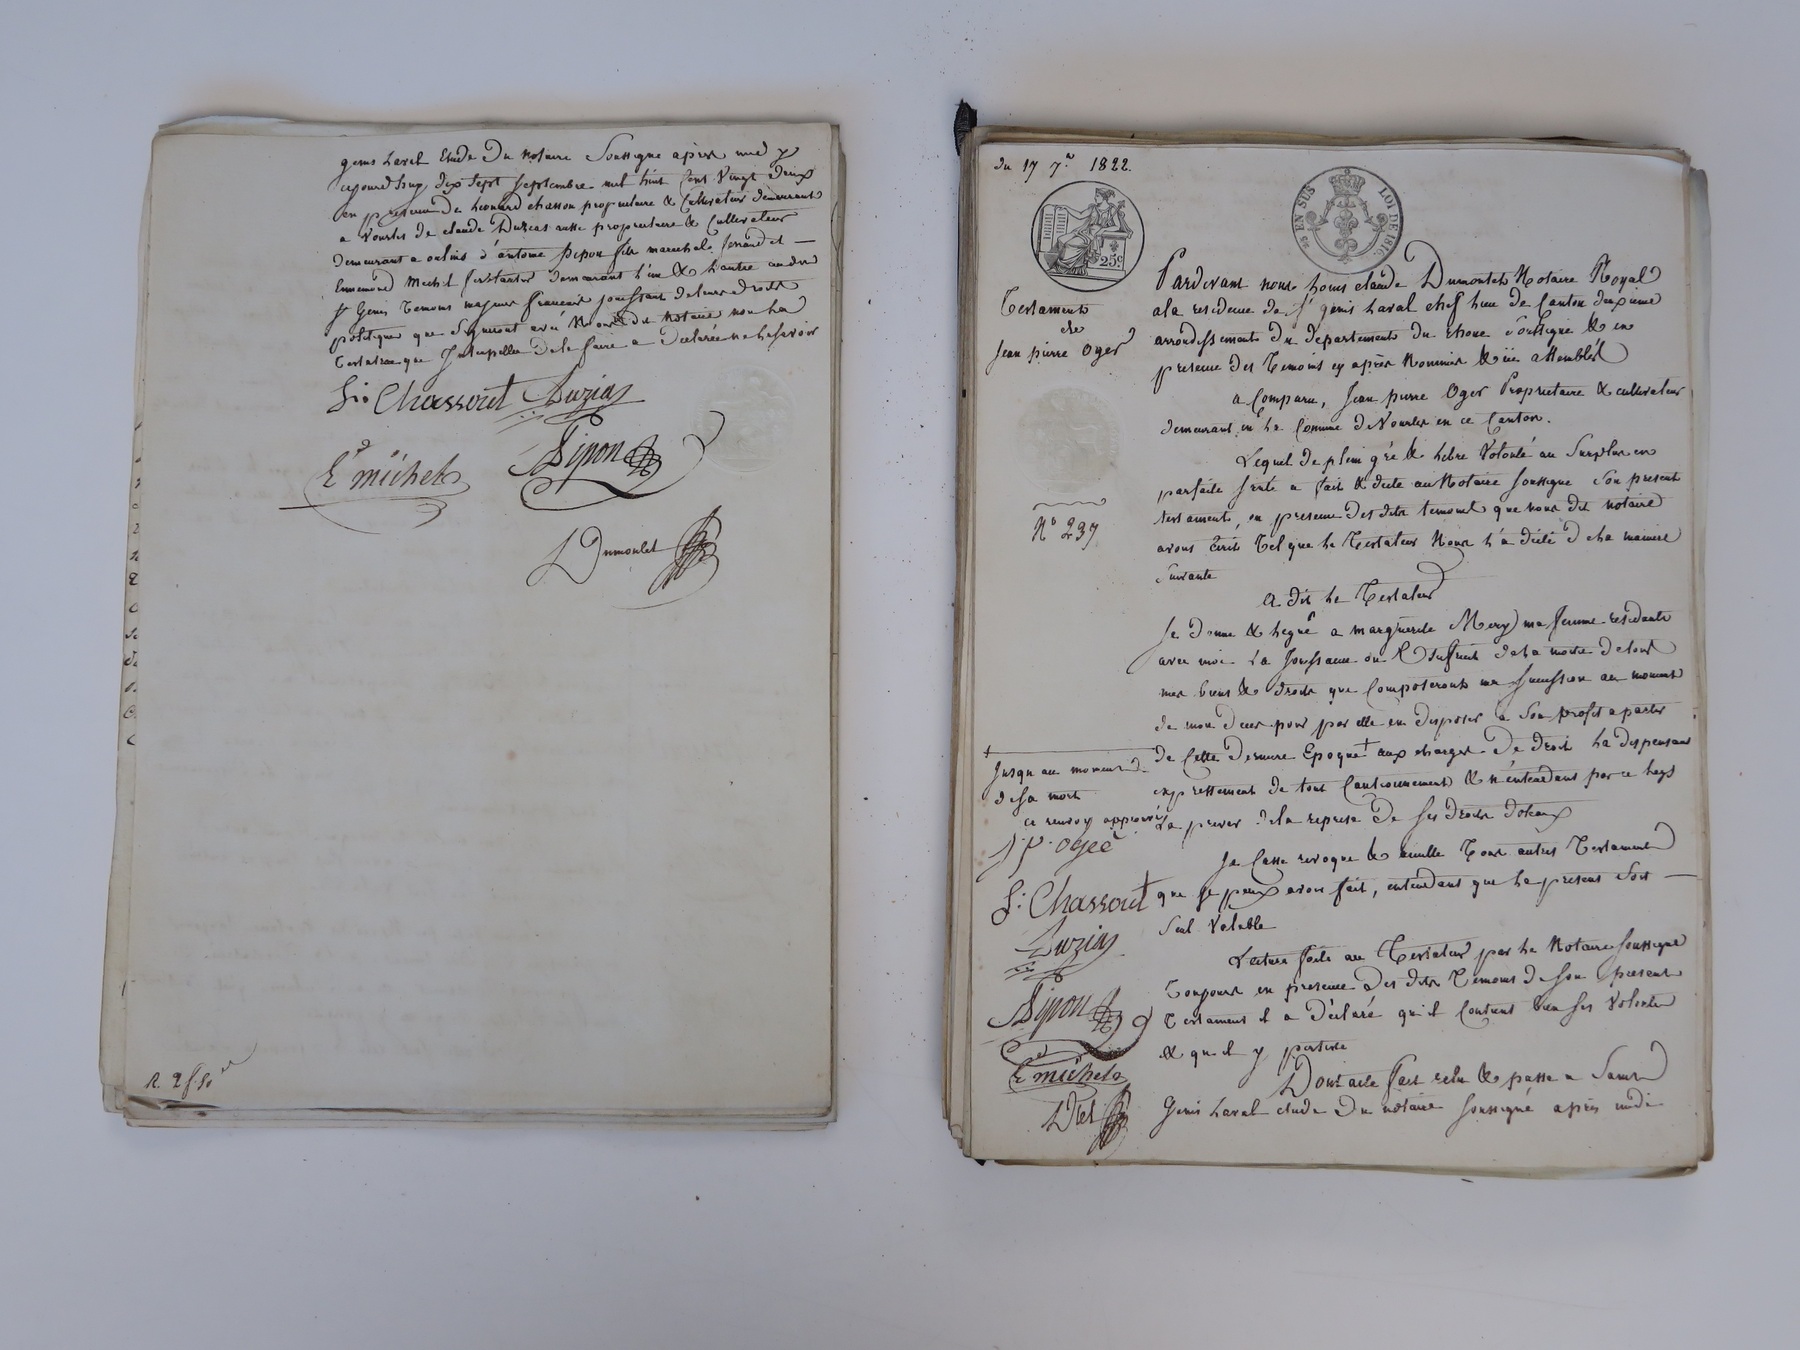 genis Laval Etude Du Notaire Soussigné après midi
aujourd'huy dix Sept Septembre mil huit Cent Vingt deux
en presence De Leonard chasson proprietaire & Cultivateur demeurant
a Vourles De claude Duzias aussi proprietaire & Cultivateur
Demeurant a oulins d'antoine pipon fils marechal ferrand et —
Ennemond Michel demeurant l'un & l'autre audit
St Genis Temoins majeurs francais jouissant de leurs droits
politiques que Signeront avec Nous dit notaire non La
Testatrice que de le faire a Déclarée ne le savoir
Chassout Duzias
E. michel Pipon
L Dumontet
R. 2f50
du 17 7.re 1822.
25 EN SUS LOI DE 1816
25c
Testament
de
Jean pierre Oger
N° 237
Pardevant nous Louis claude Dumontet Notaire Royal
a la residence de St genis Laval chef lieu de Canton deuxieme
arrondissement du departement du rhone Soussigné & en
presence des Temoins cy après Nommés & ici assemblés
a Comparu, Jean pierre Oger Proprietaire & cultivateur
demeurant en La Commune de Vourles en ce Canton.
Lequel de plein gré & Libre Volonté au Surplus en
parfaite Santé a fait & dicté au Notaire Soussigné Son present
testament, en presence des dits temoins que nous dit notaire
avons Ecrit Tel que Le Testateur Nous l'a dicté de La maniere
Suivante
A dit Le Testateur
Je Donne & Legue a marguerite Mery ma femme residente
avec moi La Jouissance ou L'Usufruit de La moitié de tous
mes biens & droits que Composeront ma Succession au moment
de mon deces pour par elle en disposer a Son profit a partir
de Cette derniere Epoque † aux charges De droit La dispensant
expressement de tout Cautionnement & n'entendant par ce Legs
La priver de la reprise De Ses droits dotaux
† Jusqu au moment
de Sa mort
Ce renvoy approuvé
J p. ogeé
Chassout
Duzias
Pipon
E michel
L Dtet
Je Casse revoque & annulle Tous autres Testament
que Je peux avoir fait, entendant que Le present Soit —
Seul Valable
Lecture faite au Testateur par Le Notaire Soussigné
Toujours en presence des dits Temoins de Son present
Testament il a Déclaré qu'il Contient bien Ses Volontés
& qu'il y persiste
Dont acte fait relu & passé a Saint
Genis Laval etude Du notaire Soussigné après midi